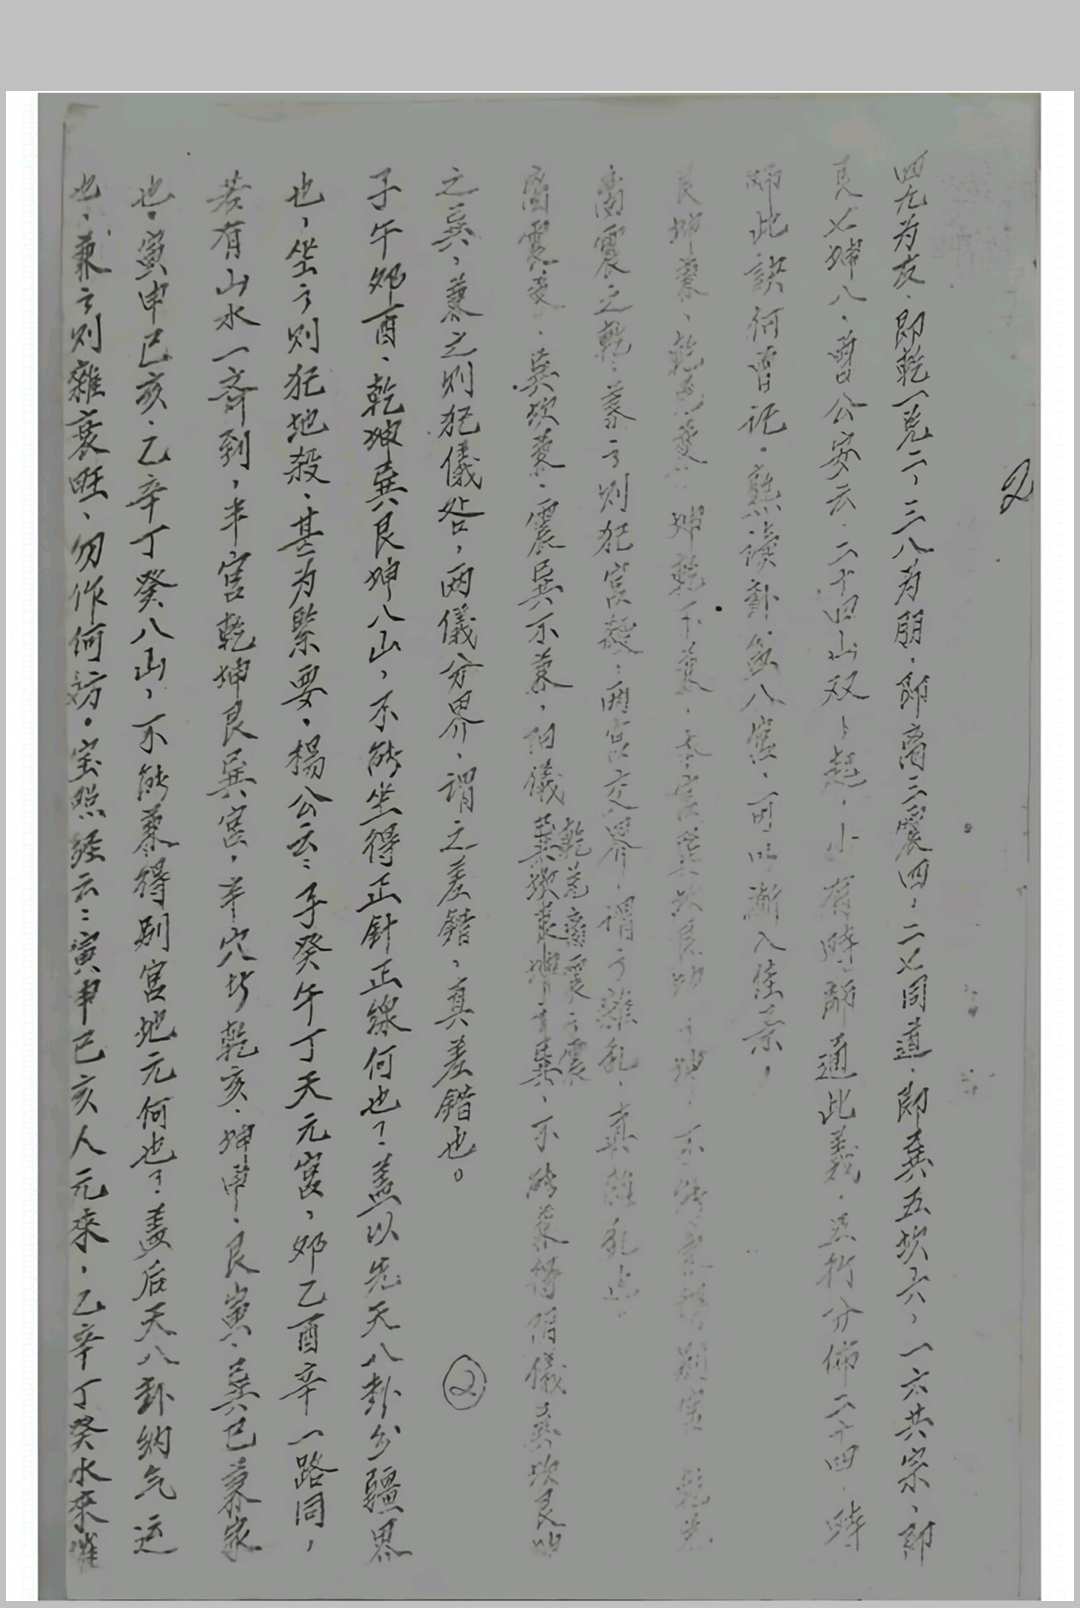 2
四九为友、即乾一兑二，三八为朋，即离三震四，二七同道、即巽五坎六，一六共宗、即
艮七坤八，曾公安云：二十四山双双起，少有時師通此義，五行分佈二十四，時
師此訣何曾记。熟读卦氣八宫，可以漸入佳景，
艮坤兼、乾兑兼、坤乾不兼，本宫巽坎艮坤之坤，不能兼得别宫 乾兑
离震之乾，兼之则犯宫杂，两宫交界，谓之雜乱，真雜乱也。
离震兼、巽坎兼，震巽不兼，阳儀乾兑离震之震
巽坎艮坤之巽，不能兼得阴儀巽坎艮坤
之巽，兼之则犯儀咎，两儀分界，谓之差錯，真差錯也。
②
子午卯酉、乾坤巽艮坤八山，不能坐得正针正線何也？盖以先天八卦分疆界
也，坐之则犯地殺、甚为緊要，楊公云：子癸午丁天元宫，卯乙酉辛一路同，
若有山水一齐到，半宫乾坤艮巽宫，辛穴坊乾亥、坤申、艮寅、巽巳兼家
也。寅申巳亥、乙辛丁癸八山，不能兼得别宫地元何也？盖后天八卦纳气运
也，兼之则雜衰旺，勿作何访。宝照经云：寅申巳亥人元來，乙辛丁癸水來催